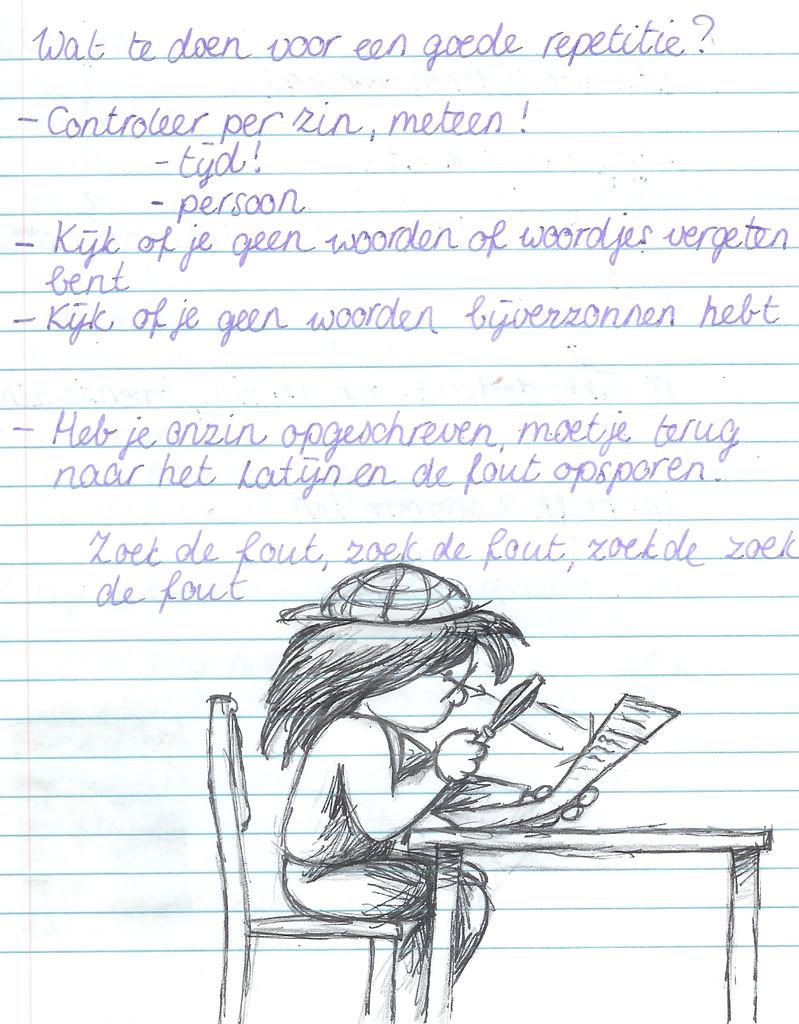 Wat te doen voor een goede repetitie?
- Controleer per zin, meteen!
- tijd!
- persoon
- Kijk of je geen woorden of woordjes vergeten
bent
- Kijk of je geen woorden bijverzonnen hebt
- Heb je onzin opgeschreven, moet je terug
naar het Latijn en de fout opsporen.
Zoek de fout, zoek de fout, zoek de zoek
de fout